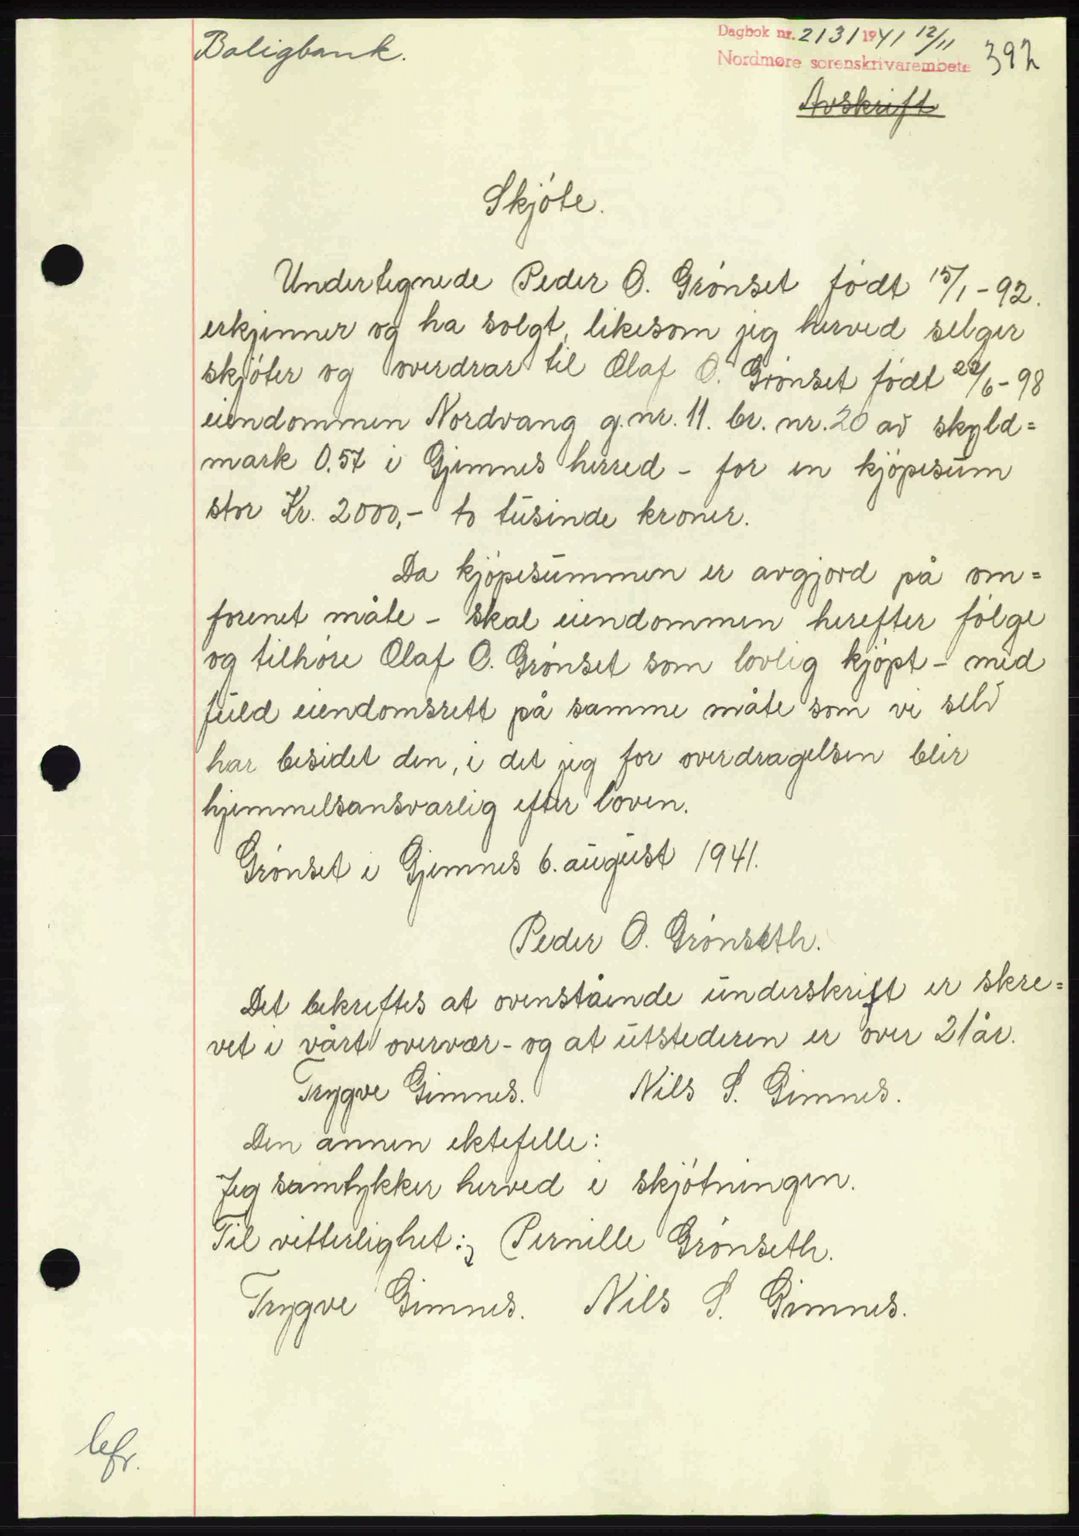 Boligbank.
Dagbok nr. 2131 1941 12/11
Nordmøre sorenskrivarembete
392
Avskrift
Skjóte.
Undertegnede Peder O. Grónset fódt 15/1-92.
erkjenner og ha solgt, likesom jeg herved selger
skjóter og overdrar til Olaf O. Grónset fódt 22/6-98
eiendommen Nordvang g.nr. 11. br. nr. 20 av skyld=
mark 0.57 i Gjemnes herred - for en kjópesum
stor Kr. 2000,- to tusinde kroner.
Da kjópesummen er avgjord på om=
forenet måte - skal eiendommen herefter fólge
og tilhóre Olaf O. Grónset som lovlig kjópt - med
fuld eiendomsrett på samme måte som vi selv
har besidet den, i det jeg for overdragelsen blir
hjemmelsansvarlig efter loven.
Grónset i Gjemnes 6. august 1941.
Peder O. Grónseth.
Det bekreftes at ovenstående underskrift er skre=
vet i vårt overvær - og at utstederen er over 21 år.
Trygve Gimnes. Nils S. Gimnes.
Den annen ektefelle:
Jeg samtykker herved i skjótningen.
Til vitterlighet:; Pernille Grónseth.
Trygve Gimnes. Nils S. Gimnes.